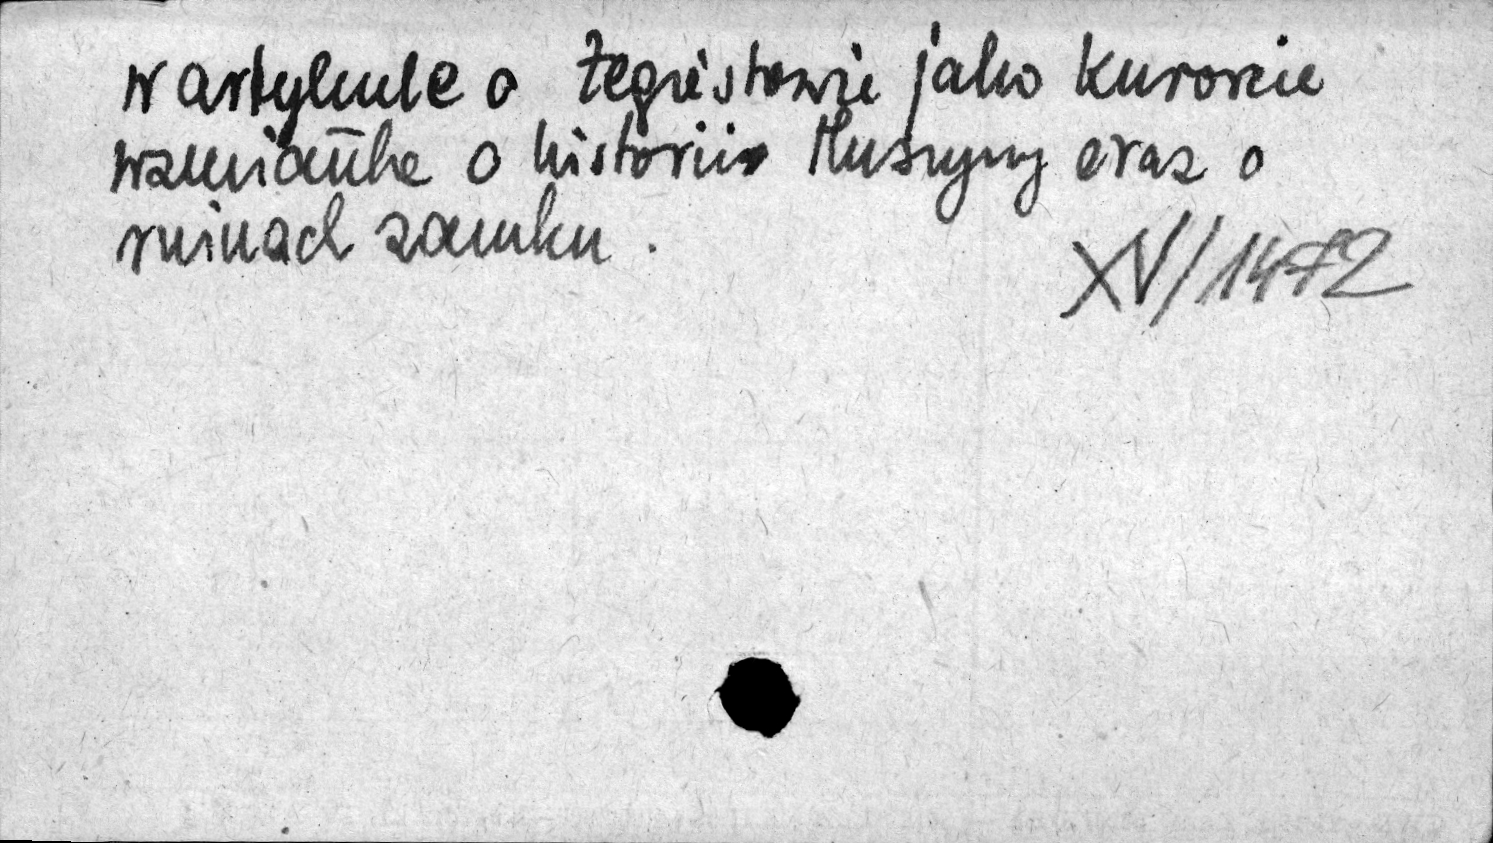 w artykule o Żegiestowie jako kurorcie
wzmianka o historii Muszyny oraz o
ruinach zamku.
XV/1472